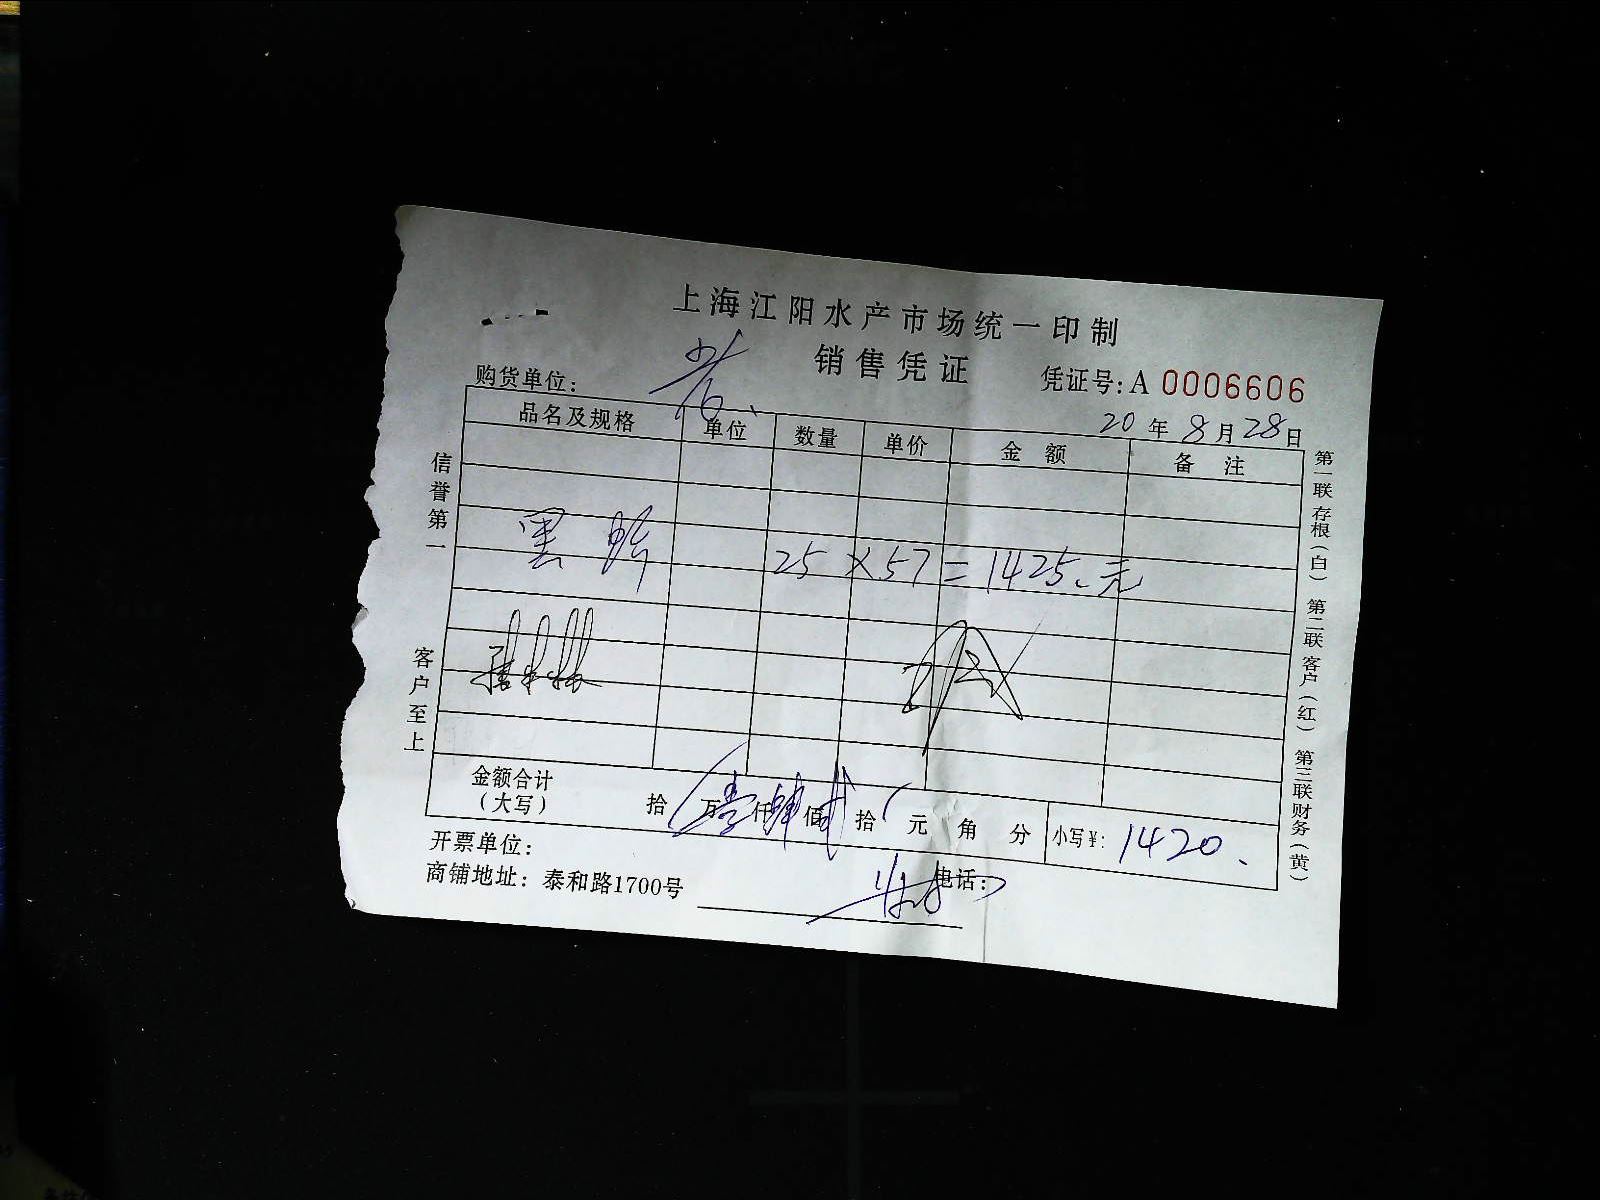 上海江阳水产市场统一印制
销售凭证
购货单位:
凭证号: A 0006606
20年8月28日
品名及规格 单位 数量 单价 金额 备注
黑 25 × 57 = 1425.元
金额合计(大写) 拾 万 壹 仟 肆 佰 贰 拾 元 角 分 小写¥: 1420.
开票单位:
商铺地址: 泰和路1700号 电话:
信誉第一
客户至上
第一联 存根(白) 第二联 客户(红) 第三联 财务(黄)